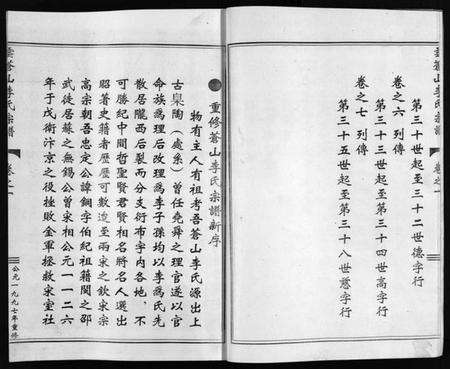 重修蒼山李氏宗譜
卷之一
第三十世起至三十二世德字行
卷之六 列傳
第三十三世起至第三十四世高字行
卷之七 列傳
第三十五世起至第三十八世慈字行
重修蒼山李氏宗譜新序
物有主人有祖考吾蒼山李氏源出上
古臯陶（處系）曾任堯舜之理官遂以官
命族為理后改理為李子孫均以李為氏先
散居隴西后裂而分支衍布宇内各地，不
可勝紀中間哲聖賢君賢相名將名人選出
昭著史籍者歷歷可數迨至兩宋之欽宋宗
高宗朝吾忠定公諱鋼字伯紀祖籍閩之邵
武徙居蘇之無錫公曾宋相公元一一二六
年于戊衛汴京之役極敗金軍拯救宋室社
李氏宗譜
卷之一
公元一九九七年重修